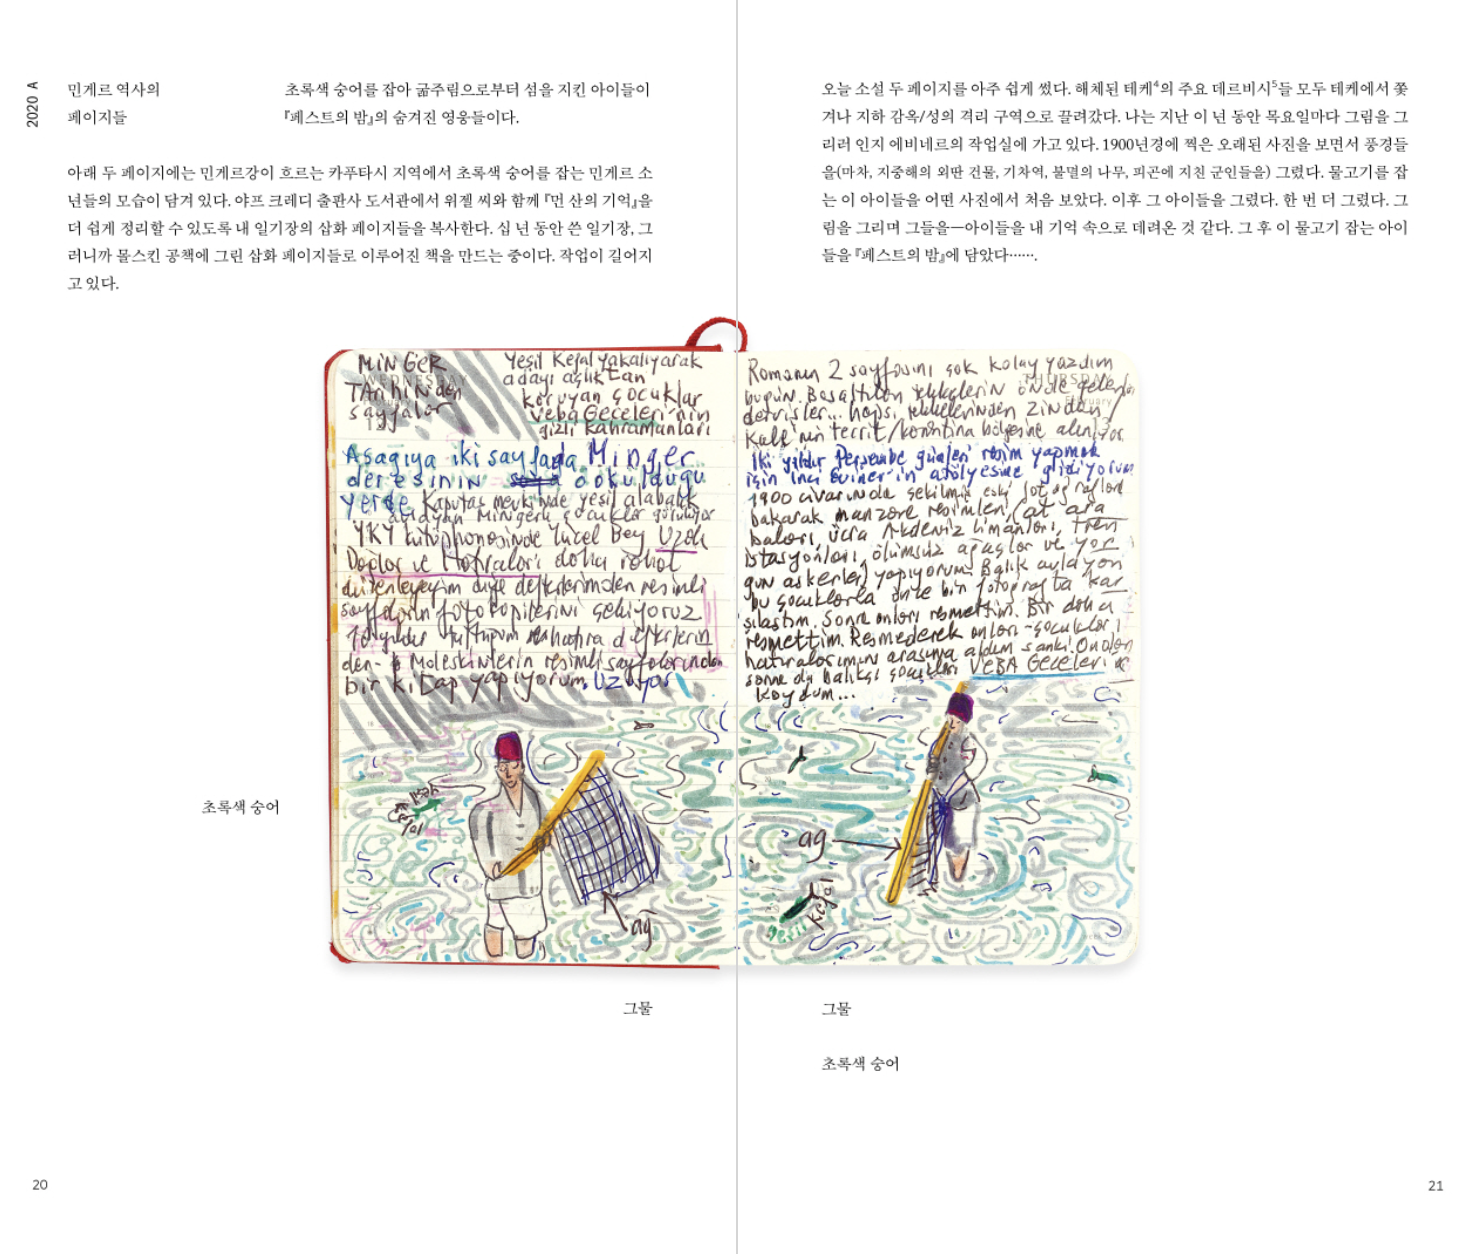 2020 A
민게르 역사의
페이지들
초록색 숭어를 잡아 굶주림으로부터 섬을 지킨 아이들이
『페스트의 밤』의 숨겨진 영웅들이다.
아래 두 페이지에는 민게르강이 흐르는 카푸타시 지역에서 초록색 숭어를 잡는 민게르 소
년들의 모습이 담겨 있다. 야프 크레디 출판사 도서관에서 위젤 씨와 함께 『먼 산의 기억』을
더 쉽게 정리할 수 있도록 내 일기장의 삽화 페이지들을 복사한다. 십 년 동안 쓴 일기장, 그
러니까 몰스킨 공책에 그린 삽화 페이지들로 이루어진 책을 만드는 중이다. 작업이 길어지
고 있다.
MiNGER
TARihiNden
sayfalar
Yeşil Kefal yakalıyarak
adayı açlıktan
koruyan çocuklar
Veba Geceleri'nin
gizli kahramanları
WEDNESDAY
12
Aşağıya iki sayfada Minger
deresinin döküldüğü
yerde Kaputaş mevkiinde yeşil alabalık
avlayan Mingerli çocuklar görülüyor
YKY kütüphanesinde Yücel Bey Uzak
Dağlar ve Hatıralar'ı daha rahat
düzenleyeyim diye defterlerimden resimli
sayfaların fotokopilerini çekiyoruz
10 yıldır tuttuğum defterlerin
den- Moleskinlerin resimli sayfalarından
bir kitap yapıyorum. Uzuyor
yeşil
kefal
ağ
오늘 소설 두 페이지를 아주 쉽게 썼다. 해체된 테케4의 주요 데르비시5들 모두 테케에서 쫓
겨나 지하 감옥/성의 격리 구역으로 끌려갔다. 나는 지난 이 년 동안 목요일마다 그림을 그
리러 인지 에비네르의 작업실에 가고 있다. 1900년경에 찍은 오래된 사진을 보면서 풍경들
을(마차, 지중해의 외딴 건물, 기차역, 불멸의 나무, 피곤에 지친 군인들을) 그렸다. 물고기를 잡
는 이 아이들을 어떤 사진에서 처음 보았다. 이후 그 아이들을 그렸다. 한 번 더 그렸다. 그
림을 그리며 그들을—아이들을 내 기억 속으로 데려온 것 같다. 그 후 이 물고기 잡는 아이
들을 『페스트의 밤』에 담았다…….
THURSDAY
February
Romanın 2 sayfasını çok kolay yazdım
bugün. Boşaltılan tekkelerin önde gelen
dervişler... hepsi tekkelerinden zindan/
Kale'nin tecrit/karantina bölgesine alınıyor.
İki yıldır Perşembe günleri resim yapmak
için İnci Eviner'in atölyesine gidiyorum
1900 civarında çekilmiş eski fotoğraflara
bakarak manzara resimleri, (at ara
baları, ücra Akdeniz limanları, tren
istasyonları, ölümsüz ağaçlar ve yor
gun askerler) yapıyorum. Balık avlayan
bu çocuklarla önce bir fotoğrafta kar
şılaştım. Sonra onları resmettim. Bir daha
resmettim. Resmederek onları -çocukları
hatıralarımın arasına aldım sanki. Ondan
sonra da balıkçı çocukları VEBA Geceleri'ne
koydum...
ağ
yeşil
kefal
초록색 숭어
그물
그물
초록색 숭어
20
21